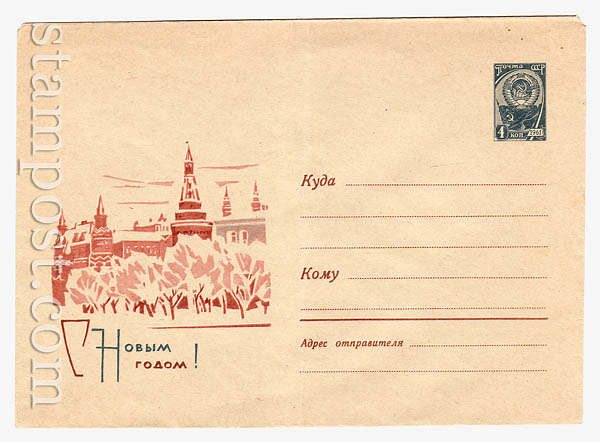 stampost.com
Почта СССР
4 КОП 1961
Куда
Кому
Адрес отправителя
С Новым
годом!